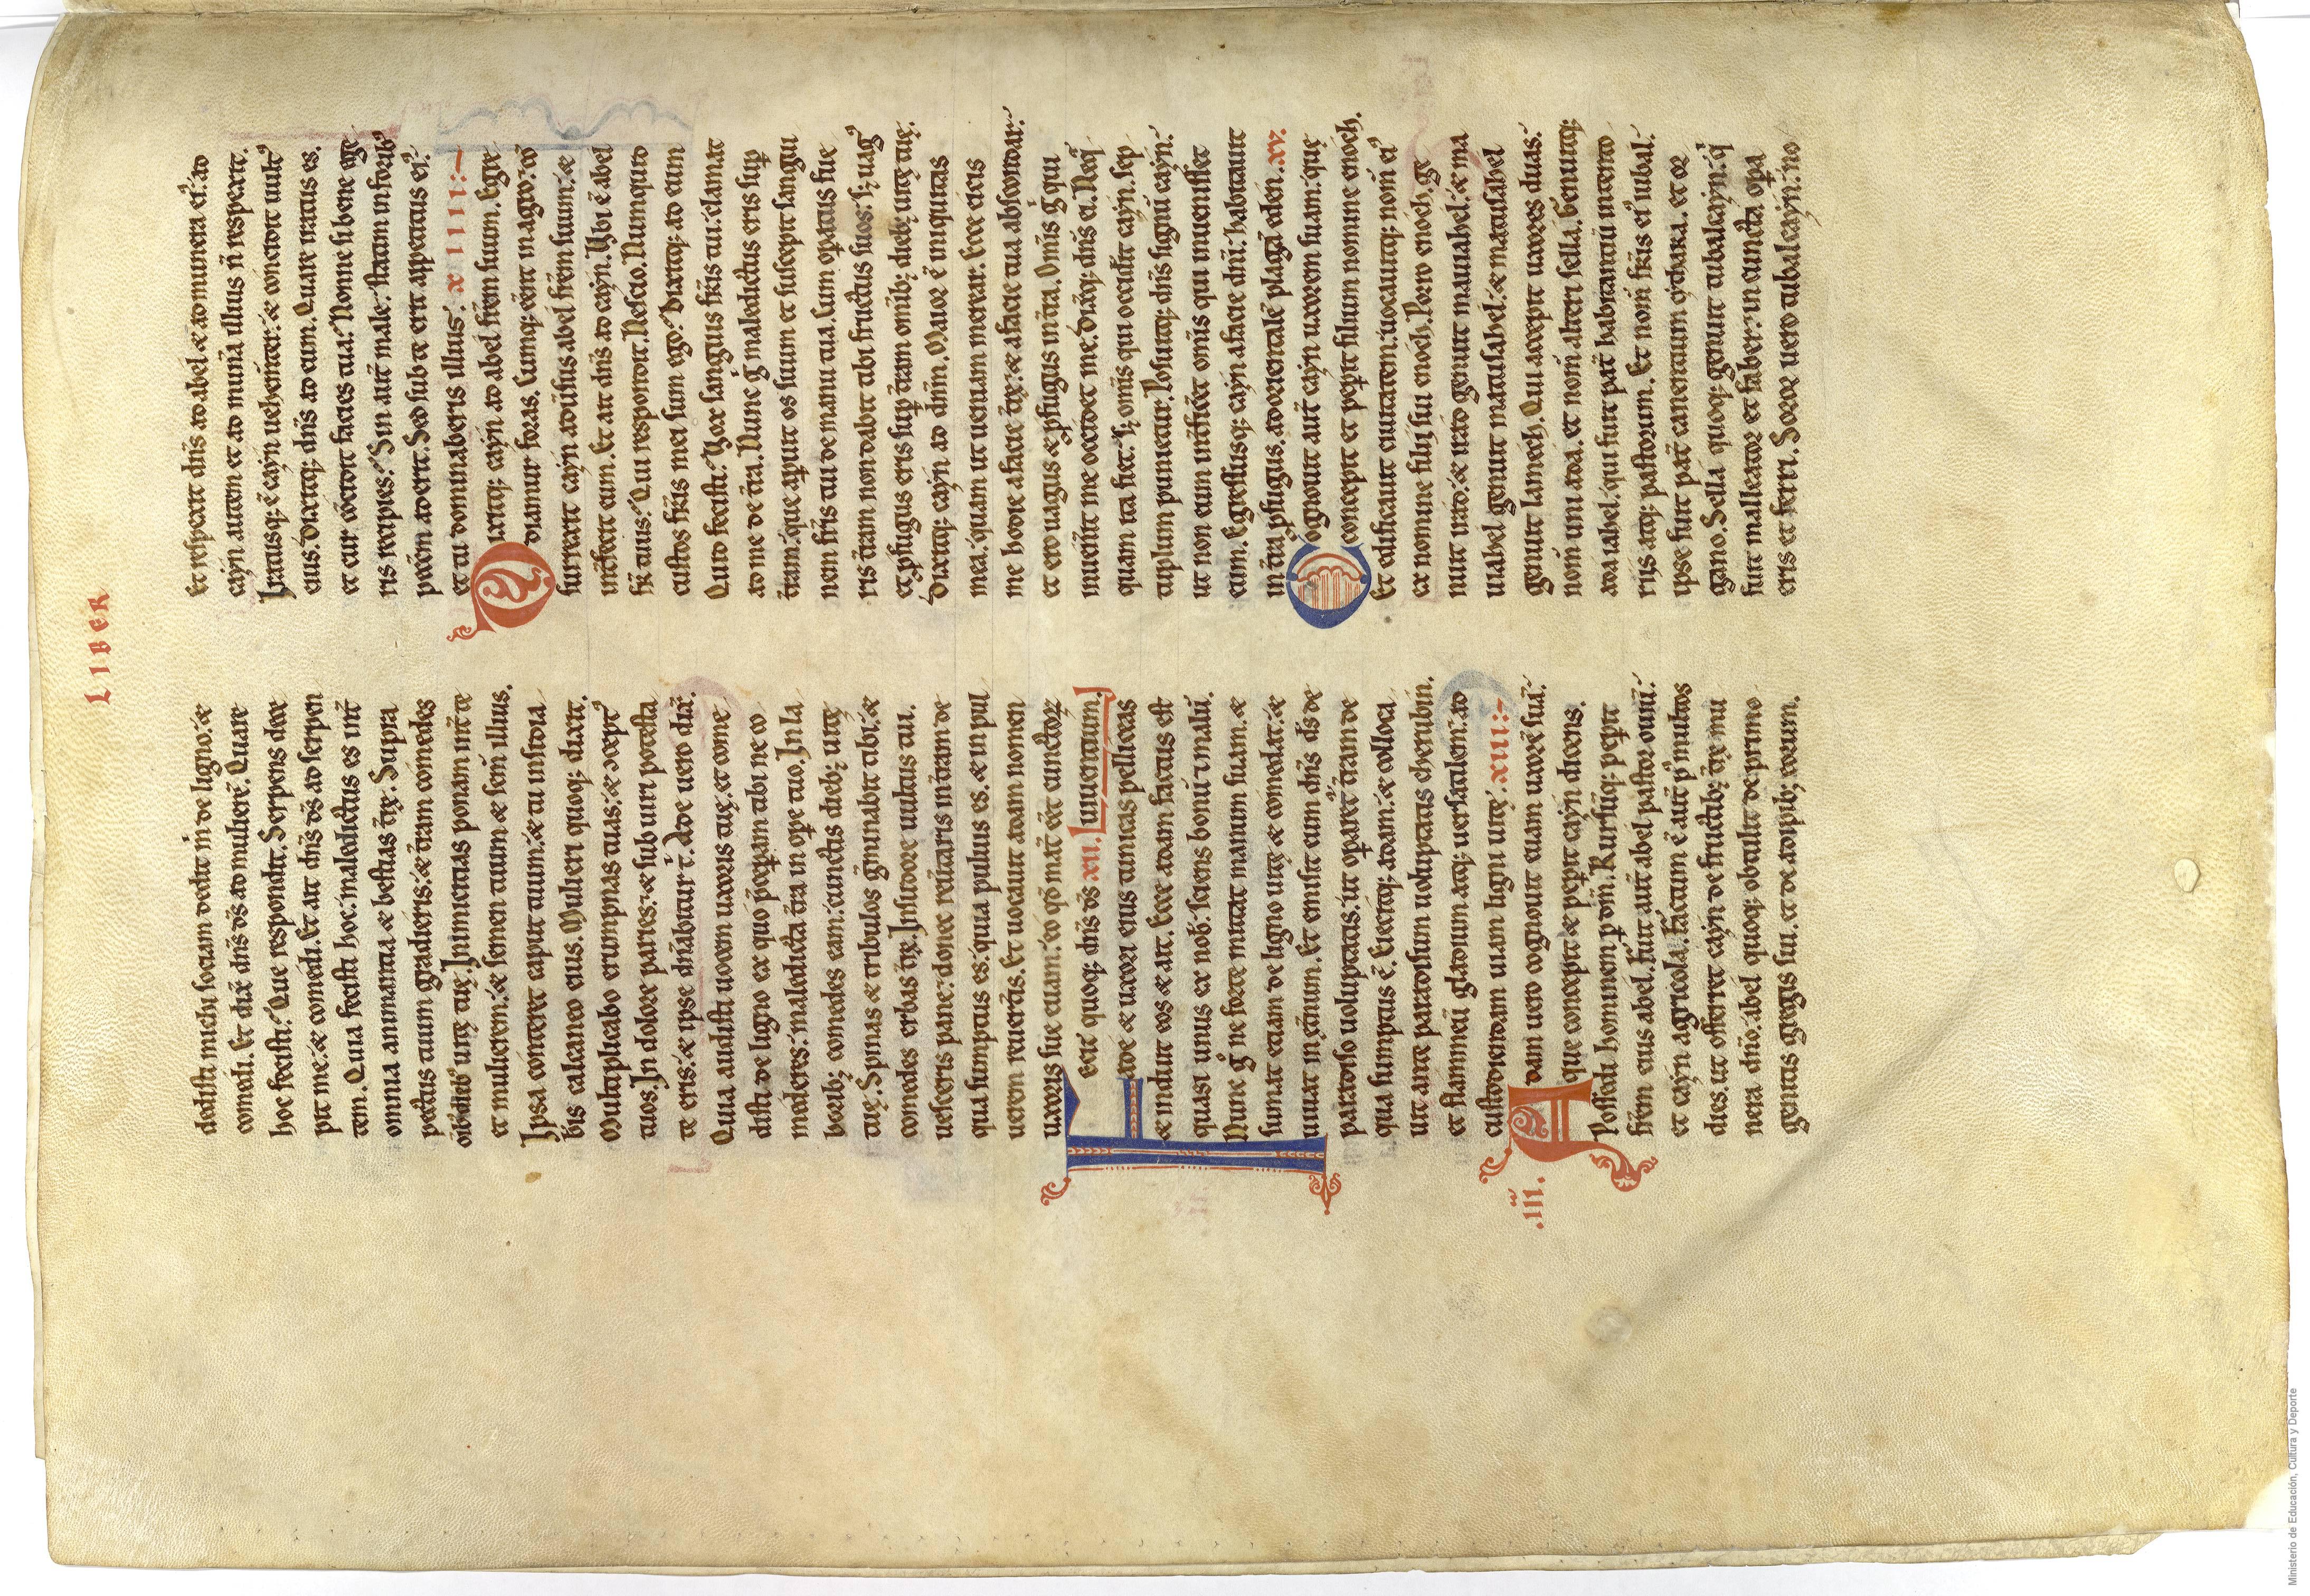 LIBER
dedisti michi sociam dedit m̅ de ligno: &
comedi. Et dix̅ dn̅s d̅s ad muliere̅. Quare
hoc fecisti? Que respondit. Serpens dece
pit me: & comedi. Et ait dn̅s d̅s ad serpen
tem. Quia fecisti hoc: maledictus es int̅
omnia animantia & bestias t̅rę. Supra
pectus tuum gradieris: & t̅ram comedes
o̅ib; dieb; uitę tuę. Inimicitias ponam int̅ te
et mulierem: & semen tuum & sem̅ illius.
Ipsa conteret caput tuum: & tu insidia
b̅is calcaneo eius. Mulieri quoq; dixit.
Multiplicabo erumpnas tuas: & ꝯceptꝰ
tuos. In dolore paries: & sub uiri potesta
te eris: & ipse dn̅abitur t̅. Ade uero dix̅.
Quia audisti uocem uxoris tuę. et come
disti de ligno ex quo p̅cep̅am tibi ne co
mederes: maledicta t̅ra in ope tuo. In la
borib; comedes eam: cunctis dieb; uitę
tuę. Spinas & tribulos g̅minabit tibi: &
comedes erbas t̅rę. In sudore uultus tui.
uesceris pane: donec reu̅taris in t̅ram de
qua sumptus es: quia puluis es. & in pul
uerem reuert̅is. Et uocauit adam nomen
uxoris sue euam: eo q̅d mat̅ ee̅t cunctoꝝ
uiuentium.
Fecit quoq; dn̅s d̅s xii.
ade & uxori eius tunicas pelliceas
& induit eos & ait. Ecce adam factus est
quasi unus ex nob̅: sciens bonu̅ ⁊ malu̅.
Nunc g̊ ne forte mittat manum suam. &
sumat etiam de ligno uitę & comedat: &
uiuat in et̅num. Et emisit eum dn̅s d̅s de
paradiso uoluptatis: ut opareť t̅ram de
qua sumptus e̅. Eiecitq; adam: & colloca
uit ante paradisum uoluptatis cherubin.
et flammeu̅ gladium atq; uersatilem: ad
custodiendam uiam ligni uitę. xiii:~
.iiii.
Adam uero cognouit euam uxore̅ sua̅:
que concepit & pep̅it cayn dicens.
Possedi hominem p̱ dn̅m. Rursu̅q; pep̅it
fr̅em eius abel. Fuit aut̅ abel pastor ouiu̅:
et cayn agricola. Factum e̅ aut̅ pꝰ multos
dies. ut offerret cayn de fructib; t̅rę mu
nera dn̅o. abel quoq; obtulit de primo
genitis gregis sui. et de adipib; eorum.
Et respexit dn̅s ad abel & ad munera eiꝰ: ad
cayn autem et ad mun̅a illius n̅ respexit.
Iratusq; e̅ cayn uehem̅ter: & concidit uultꝰ
eius. dixitq; dn̅s ad eum. Quare iratus es.
et cur ꝯcidit facies tua? Nonne si bene ege
ris recipies? Sin aut̅ male: statim in foribꝰ
pecc̅m aderit. Sed sub te erit appetitus eiꝰ:
et tu dominaberis illius. xiiii:~
Dixitq; cayn ad abel fr̅em suum. Egre
diamur foras. Cumq; ee̅nt in agro: co̅
surrexit cayn adu̅sus abel fr̅em suum: &
int̅fecit eum. Et ait dn̅s ad cayn. Ubi e̅ abel
fr̅ tuus? Qui respondit. Nescio. Numquid
custos fr̅is mei sum ego? Dixitq; ad eum
Quid fecisti? Vox sanguis fr̅is tui: clamat
ad me de t̅ra. Nunc g̊ maledictus eris sup̱
t̅ram: que ap̱uit os suum et suscepit sangui
nem fr̅is tui de manu tua. Cum op̱atus fue
ris t̅ram non dabit tibi fructus suos: s; uagꝰ
et ꝓfugus eris sup̱ t̅ram om̅ib; dieb; uitę tuę.
Dixitq; cayn ad dn̅m. Maior e̅ iniquitas
mea: quam ut ueniam merear. Ecce eicis
me hodie a facie t̅rę: & a facie tua abscondar:
et ero uagus & ꝓfugus in t̅ra. Om̅is g̊ qui
inuen̅it me occidet me. Dixitq; dn̅s ei. Neq̅
quam ita fiet: s; om̅is qui occid̅it cayn. sep
tuplum punietur. Posuitq; dn̅s signu̅ cayn:
ut non eum int̅fic̅et om̅is qui inuenisset
eum. Egressusq; cayn a facie dn̅i: habitauit
in t̅ra ꝓfugus. ad orientale̅ plaga̅ eden. xv.
Cognouit aut̅ cayn uxorem suam: quę
concepit et pep̱it filium nomine enoch.
Et edificauit ciuitatem: uocauitq; nom̅ eiꝰ
ex nomine filii sui enoch. Porro enoch. ge
nuit irad: & irad genuit mauiahel: & ma
uiahel genuit matusahel: & matusahel
genuit lamech. Qui accepit uxores duas:
nom̅ uni ada. et nom̅ alteri sella. Genuitq;
ada iabel: qui fuit pat̅ habitantiu̅ in tento
riis atq; pastorum. Et nom̅ fr̅is eiꝰ iubal:
ipse fuit pat̅ canentium cythara. et or
gano. Sella quoq; genuit tubalcayn: q̇
fuit malleator et faber: in cuncta op̱a
eris et ferri. Soror uero tubalcayn: no